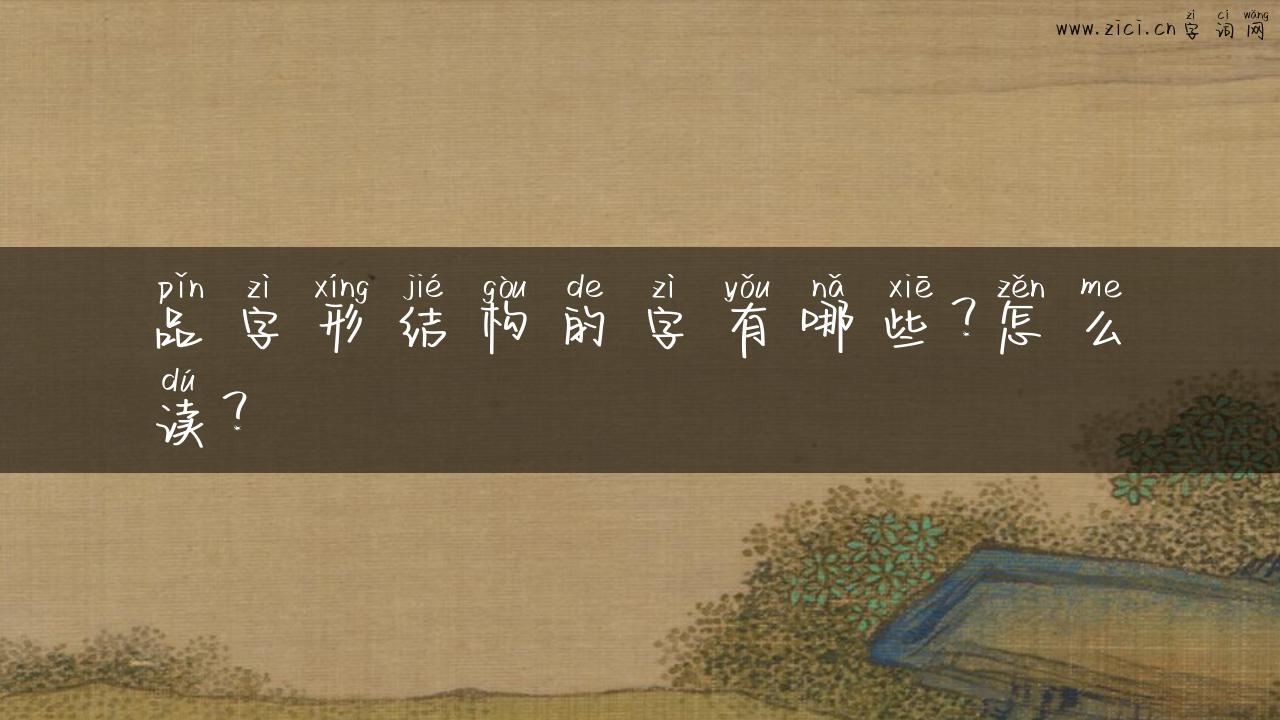 zì cí wǎng
www.zici.cn字词网
pǐn zì xíng jié gòu de zì yǒu nǎ xiē zěn me
品字形结构的字有哪些？怎么
dú
读？